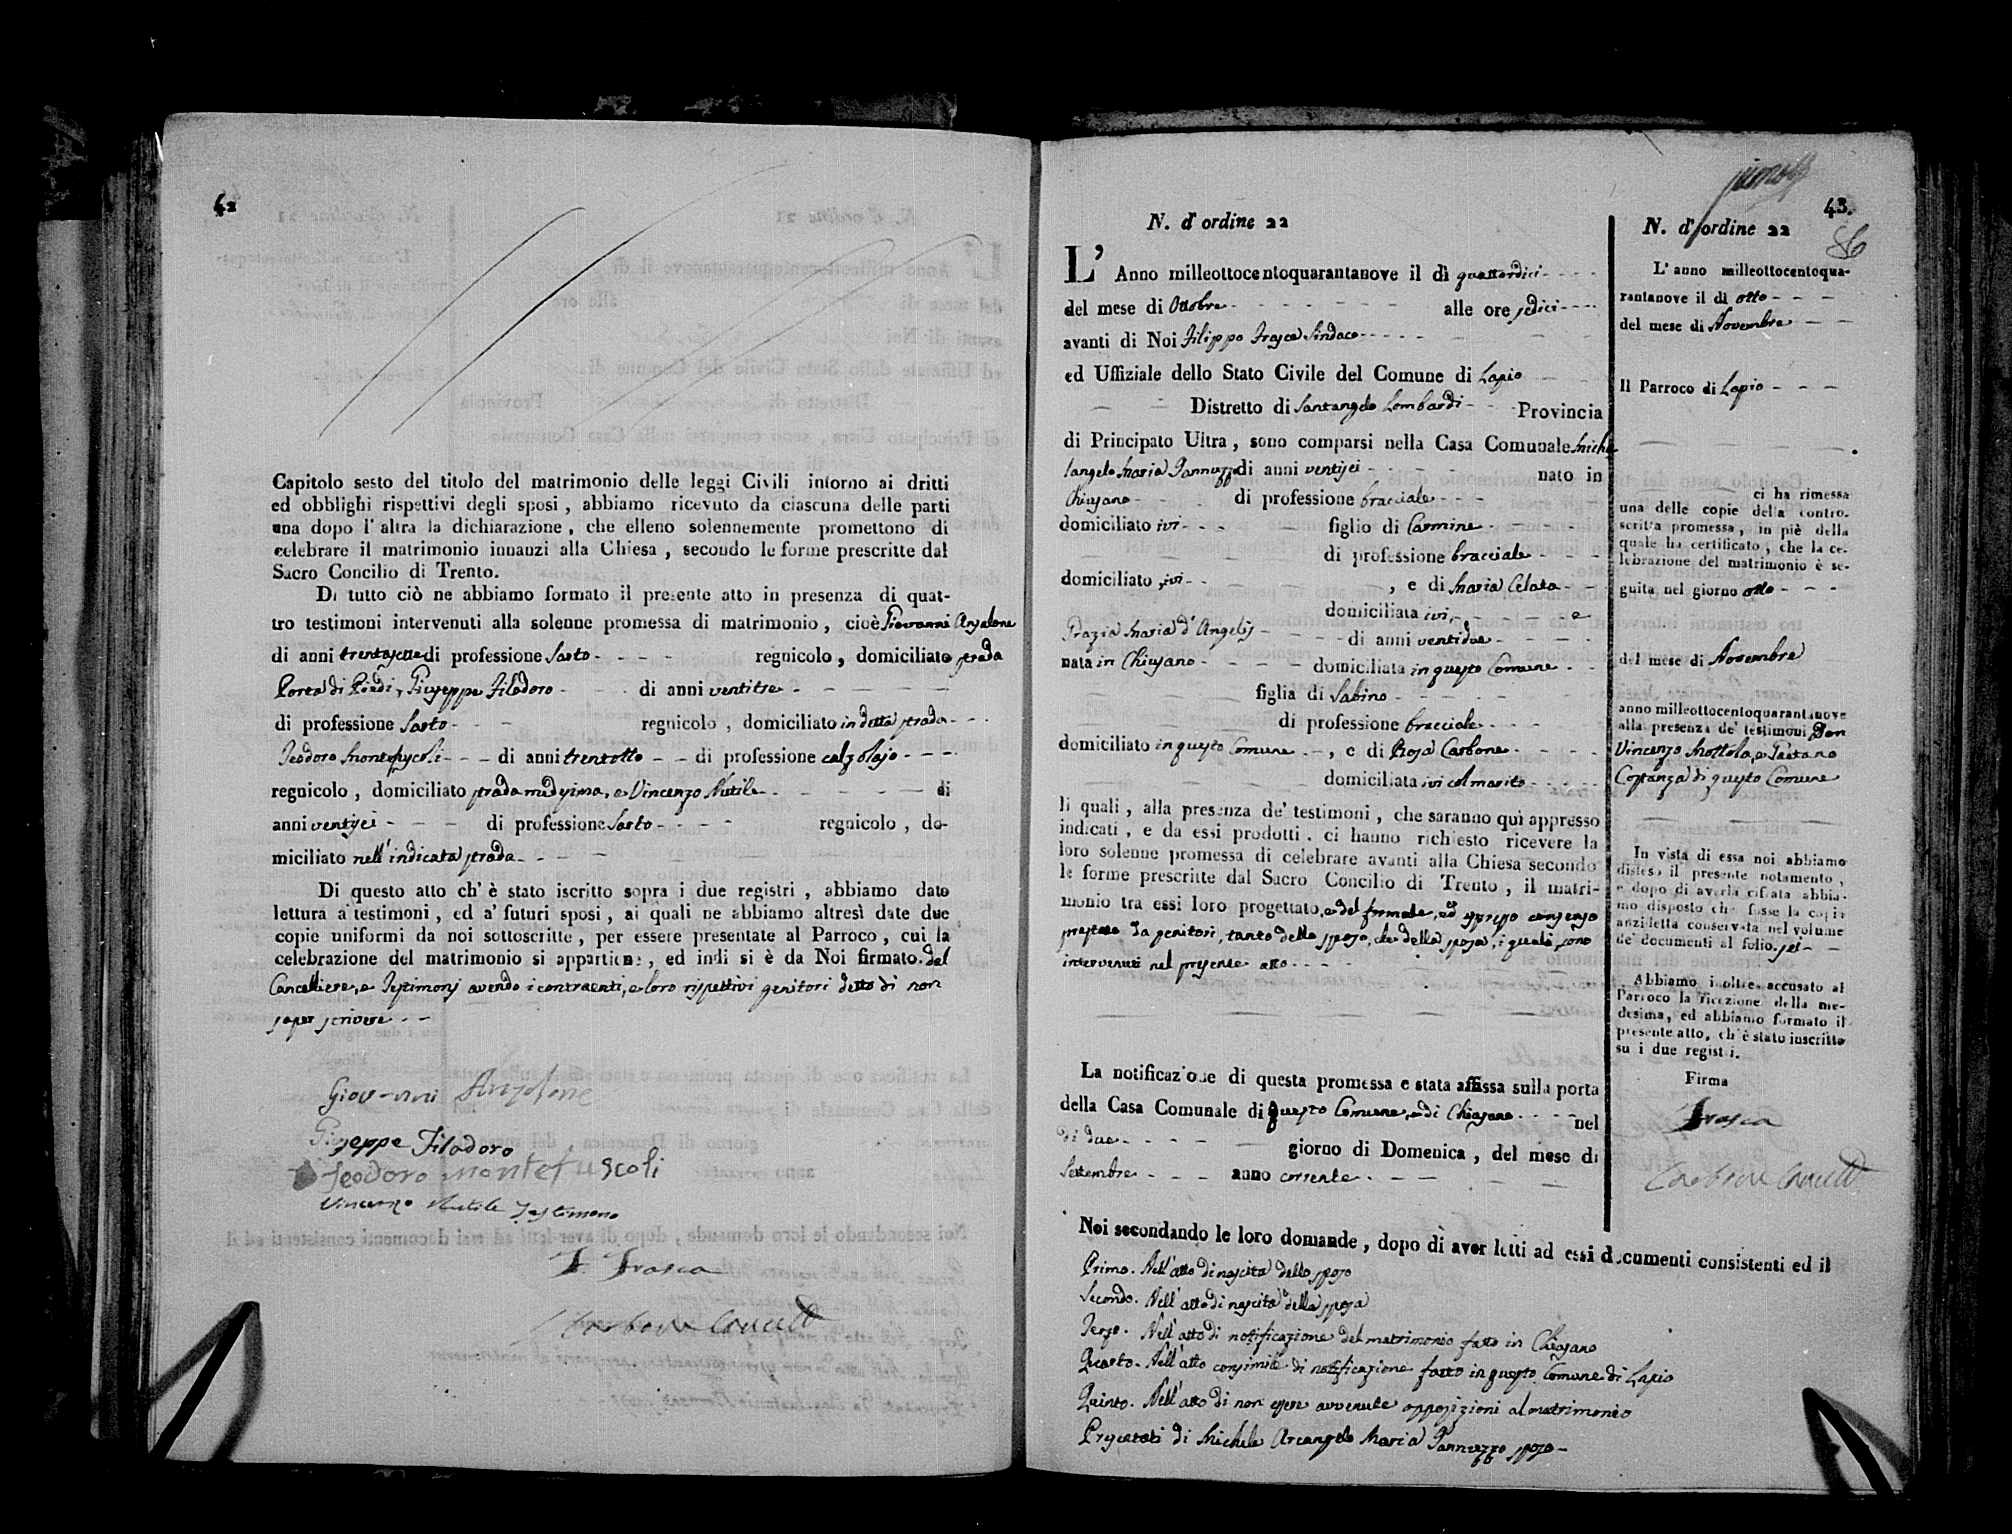 42
Capitolo sesto del titolo del matrimonio delle leggi Civili intorno ai dritti
ed obblighi rispettivi degli sposi, abbiamo ricevuto da ciascuna delle parti
una dopo l'altra la dichiarazione, che elleno solennemente promettono di
celebrare il matrimonio innanzi alla Chiesa, secondo le forme prescritte dal
Sacro Concilio di Trento.
Di tutto ciò ne abbiamo formato il presente atto in presenza di quat-
tro testimoni intervenuti alla solenne promessa di matrimonio, cioè Giovanni Anzalone
di anni trentasette di professione Sarto - - - - regnicolo, domiciliato strada
Porta di Piedi, Giuseppe Filadoro - - - di anni ventitre - - - - -
di professione Sarto - - - regnicolo, domiciliato in detta strada - - -
Teodoro Montefuscoli - - - di anni trentotto - - di professione calzolajo - - -
regnicolo, domiciliato strada medesima, e Vincenzo Nutile - - - - - di
anni ventisei - - - di professione Sarto - - - - regnicolo, do-
miciliato nell'indicata strada - - -
Di questo atto ch'è stato iscritto sopra i due registri, abbiamo dato
lettura a'testimoni, ed a'futuri sposi, ai quali ne abbiamo altresì date due
copie uniformi da noi sottoscritte, per essere presentate al Parroco, cui la
celebrazione del matrimonio si appartiene, ed indi si è da Noi firmato. del
Cancelliere, e Testimonj avendo i contraenti, e loro rispettivi genitori detto di non
saper scrivere - -
Giovanni Anzalone
Giuseppe Filadoro
Teodoro montefuscoli
Vincenzo Nutile Testimono
F. Frasca
43.
86
N. d'ordine 22
L'Anno milleottocentoquarantanove il dì quattordici - - - -
del mese di Ottobre - - - - - - alle ore sedici - - - -
avanti di Noi Filippo Frasca Sindaco - - - - -
ed Uffiziale dello Stato Civile del Comune di Lapio
Distretto di Santangelo Lombardi - - Provincia
di Principato Ultra, sono comparsi nella Casa Comunale Miche
langelo Maria Pannuzzo di anni ventisei - - - - nato in
Chiusano - - di professione bracciale - - -
domiciliato ivi - - - figlio di Carmine - - - -
di professione bracciale - - -
domiciliato ivi - - , e di Maria Celata - - -
domiciliata ivi, - - e
Grazia Maria d'Angelis - - - - di anni ventidue - - - -
nata in Chiusano - - - - domiciliata in questo Comune - -
figlia di Sabino - - - - -
di professione bracciale - - - -
domiciliato in questo Comune - -, e di Rosa Carbone - - - -
domiciliata ivi col marito - - - -
li quali, alla presenza de'testimoni, che saranno quì appresso
indicati, e da essi prodotti, ci hanno richiesto ricevere la
loro solenne promessa di celebrare avanti alla Chiesa secondo
le forme prescritte dal Sacro Concilio di Trento, il matri-
monio tra essi loro progettato, e del formale, ed espresso consenso
prestato da genitori, tanto dello sposo, che della sposa, i quali sono
intervenuti nel presente atto - - - -
La notificazione di questa promessa è stata affissa sulla porta
della Casa Comunale di questo Comune, e di Chiusano - - - - nel
dì due - - - - giorno di Domenica, del mese di
Settembre - - - anno corrente - - -
Noi secondando le loro domande, dopo di aver letti ad essi documenti consistenti ed il
Primo. Nell'atto di nascita dello sposo
Secondo. Nell'atto di nascita della sposa
Terzo. Nell'atto di notificazione del matrimonio fatto in Chiusano
Quarto. Nell'atto consimile di notificazione fatto in questo Comune di Lapio
Quinto. Nell'atto di non essere avvenute opposizioni al matrimonio
Presentati di Michele Arcangelo Maria Pannuzzo sposo -
N. d'ordine 22
L'anno milleottocentoqua-
rantanove il dì otto - - -
del mese di Novembre - -
Il Parroco di Lapio - - -
ci ha rimessa
una delle copie della contro-
scritta promessa, in piè della
quale ha certificato, che la ce-
lebrazione del matrimonio è se-
guita nel giorno otto - - -
del mese di Novembre
anno milleottocentoquarantanove
alla presenza de'testimoni Don
Vincenzo Mottola, e Gaetano
Costanza di questo Comune
In vista di essa noi abbiamo
disteso il presente notamento,
e dopo di averla cifrata abbia-
mo disposto che fosse la copia
anzidetta conservata nel volume
de'documenti al folio sei - -
Abbiamo inoltre accusato al
Parroco la ricezione della me-
desima, ed abbiamo formato il
presente atto, ch'è stato inscritto
su i due registri.
Firma
Frasca